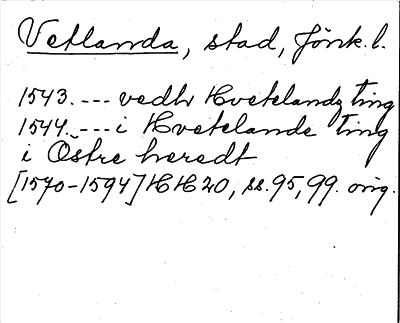 Vetlanda, stad, Jönk. l.
1543. --- vedh Hvetelandz ting
1544. --- i Hvetelande ting
i Östre heredt
[1570-1594] HH 20, ss. 95, 99. orig.